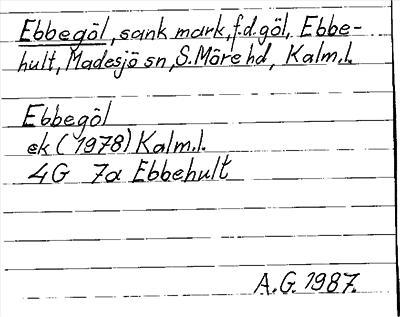 Ebbegöl, sank mark, f.d. göl, Ebbe-
hult, Madesjö sn, S. Möre hd, Kalm.l.
Ebbegöl
ek (1978) Kalm.l.
4G 7a Ebbehult
A.G. 1987.